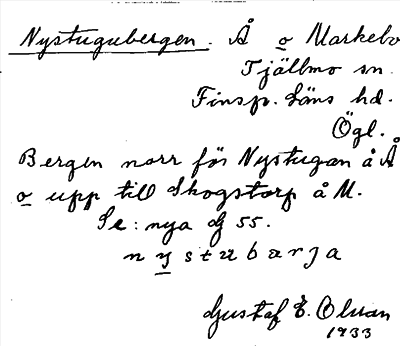 Nystugubergen. Å o Markebo
Tjällmo sn.
Finsp. läns hd.
Ögl.
Bergen norr för Nystugan å Å
o upp till Skogstorp å M.
Se: nya 55.
nystubærja
Gustaf E. Olsson
1933